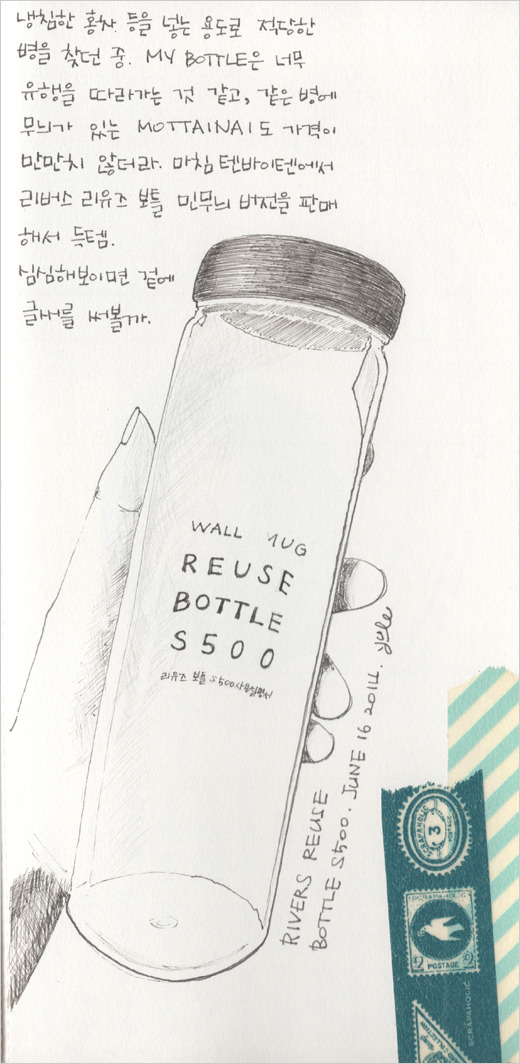 냉침한 홍차 등을 넣는 용도로 적당한
병을 찾던 중. MY BOTTLE은 너무
유행을 따라가는 것 같고, 같은 병에
무늬가 있는 MOTTAINAI도 가격이
만만치 않더라. 마침 텐바이텐에서
리버스 리유즈 보틀 민무늬 버전을 판매
해서 득템.
심심해보이면 겉에
글씨를 써볼까.
WALL MUG
REUSE
BOTTLE
S500
리유즈 보틀 S500사용설명서
RIVERS REUSE
BOTTLE S500. JUNE 16 2014.
SCRAPAHOLIC
3
POSTAGE
SCRAPAHOLIC
£2 POSTAGE £2
SCRAPAHOLIC
COLLECTION